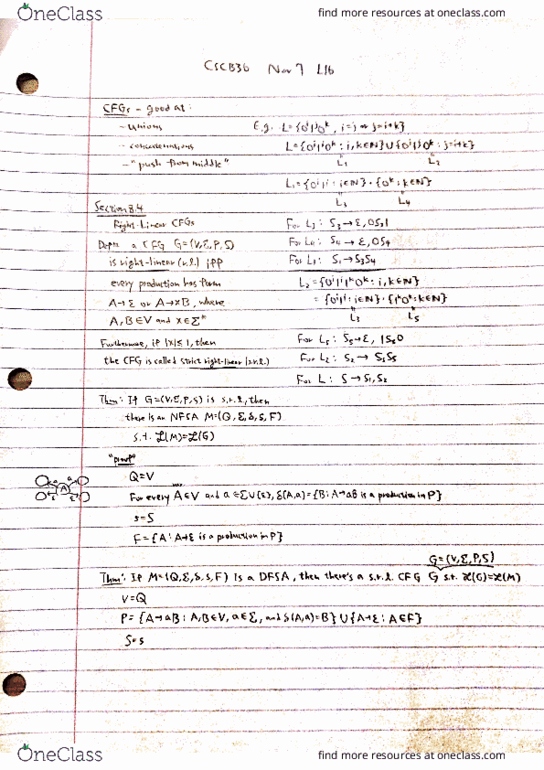 OneClass
find more resources at oneclass.com
CSCB36 Nov 7 L16
CFGs - good at:
- unions
- concatenations
- "push from middle"
E.g. L={0^i1^j0^k, i=j or j=i+k}
L={0^i1^i0^k : i,k∈N}∪{0^i1^j0^k : j=i+k}
L₁ L₂
L₁={0^i1^i : i∈N}·{0^k : k∈N}
L₃ L₄
Section 8.4
Right-Linear CFGs
Defn: a CFG G=(V,Σ,P,S)
is right-linear (r.l.) iff
every production has form
A→ε or A→xB, where
A,B∈V and x∈Σ*
Furthermore, if |x|≤1, then
the CFG is called strict right-linear (s.r.l.)
For L₃: S₃→ε, 0S₃1
For L₄: S₄→ε, 0S₄
For L₁: S₁→S₃S₄
L₂={0^i1^i1^k0^k : i,k∈N}
={0^i1^i : i∈N}·{1^k0^k : k∈N}
L₃ L₅
For L₅: S₅→ε, 1S₅0
For L₂: S₂→S₃S₅
For L: S→S₁,S₂
Thm: If G=(V,Σ,P,S) is s.r.l., then
there is an NFSA M=(Q,Σ,δ,s,F)
s.t. L(M)=L(G)
"proof"
Q=V
For every A∈V and a∈Σ∪{ε}, δ(A,a)={B: A→aB is a production in P}
s=S
F={A: A→ε is a production in P}
G=(V,Σ,P,S)
Thm: If M=(Q,Σ,δ,s,F) is a DFSA, then there's a s.r.l. CFG G s.t. L(G)=L(M)
V=Q
P={A→aB: A,B∈V, a∈Σ, and δ(A,a)=B}∪{A→ε: A∈F}
S=s
OneClass
find more resources at oneclass.com